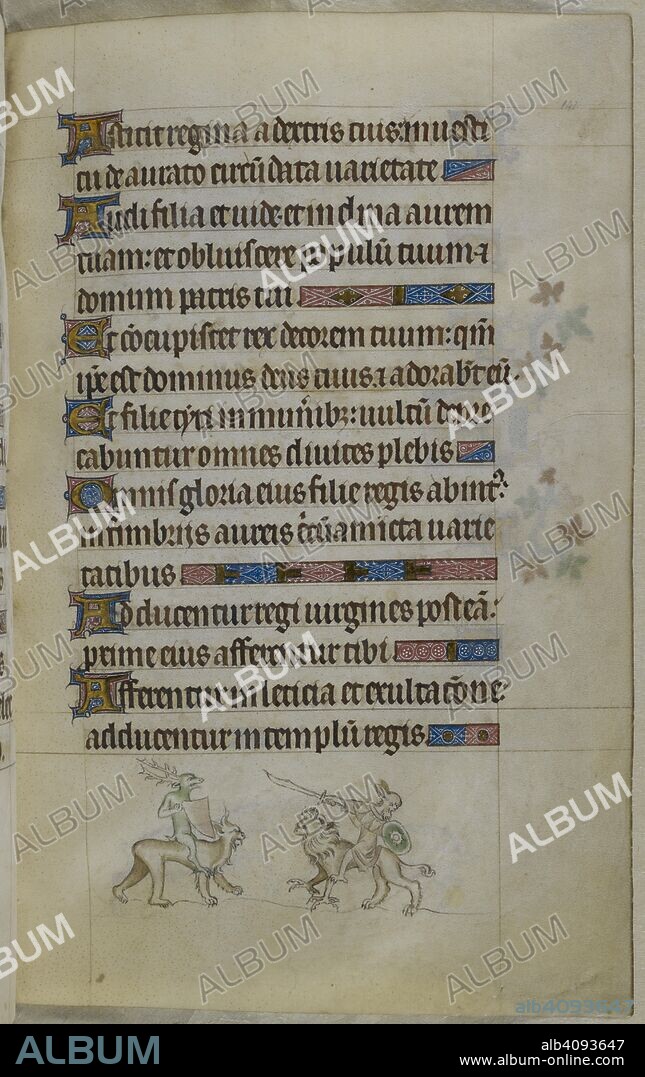 142
Astitit regina a dextris tuis: in uesti
tu de aurato circūdata uarietate
Audi filia et uide: et inclina aurem
tuam: et obliuiscere populū tuum ⁊
domum patris tui
Et ꝯcupiscet rex decorem tuum: qm̄
ip̄e est dominus deus tuus. ⁊ adorab̄t eū.
Et filie tyri in munibꝫ: uultū depre
cabuntur omnes diuites plebis
Omnis gloria eius filie regis ab intꝰ:
in fimbrijs aureis circūamicta uarie
tatibus
Adducentur regi uirgines post eā:
prime eius afferentur tibi
Afferentur in leticia et exultacōne:
adducentur in templū regis
ALBUM
alb4093647
ALBUM
alb4093647
www.album-online.com